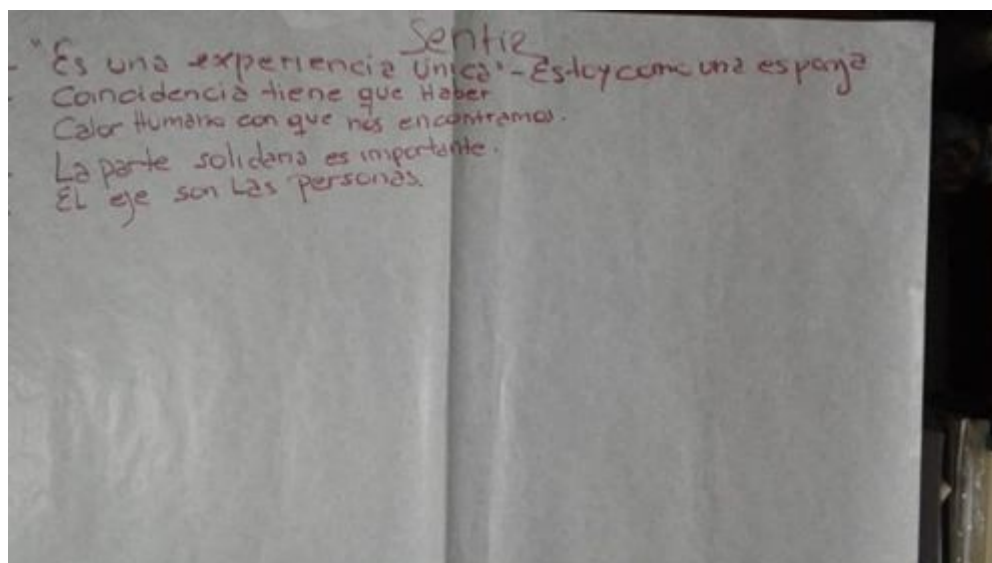 Sentir
- "Es una experiencia única" - Estoy como una esponja
- Coincidencia tiene que Haber
Calor Humano con que nos encontramos.
- La parte solidaria es importante.
- EL eje son Las personas.